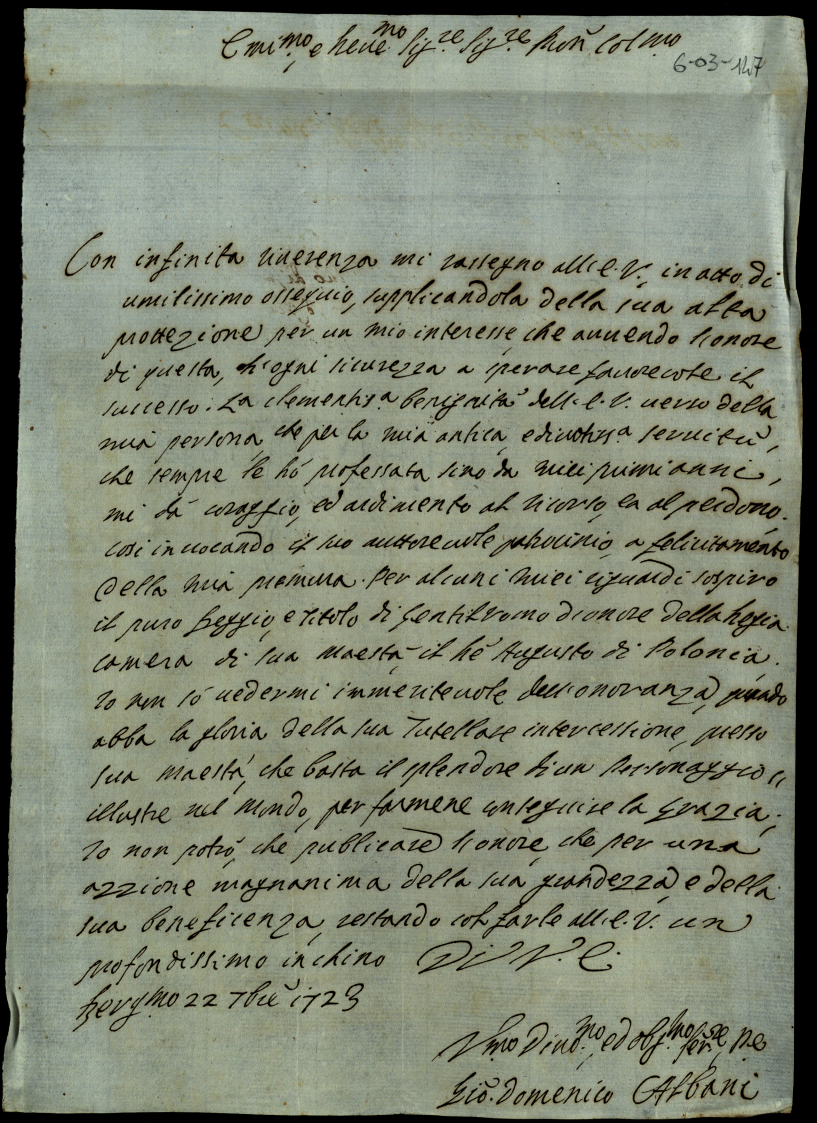 Emi.mo, e Reve.mo Sig.re Sig.re Pron Col.mo
6-03-147
Con infinita riverenza mi rassegno all'E.V. in atto di
umilissimo ossequio, supplicandola della sua alta
protezione per un mio interesse, che avvendo l'onore
di questa, hò ogni sicurezza a sperare favorevole il
successo. La clementis.a benignità dell'E.V. verso della
mia persona, che per la mia antica, e divotis.a servitù,
che sempre le hò professata sino da miei primi anni,
mi dà coraggio, ed ardimento al ricorso, ea al perdono.
così invocando il suo auttorevole patrocinio, a felicitamento
della mia premura. Per alcuni miei riguardi sospiro
il puro freggio, e titolo di Gentiluomo d'onore della Regia
camera di sua Maestà il Rè Augusto di Polonia.
Io non sò vedermi immeritevole dell'onoranza, quando
abba la gloria della sua Tutellare intercessione, presso
sua Maestà, che basta il splendore d'un Personaggio sì
illustre nel Mondo, per farmene conseguire la Grazia.
Io non potrò, che publicare l'onore, che per una
azzione magnanima della sua grandezza, e della
sua beneficenza, restando col farle all'E.V. un
profondissimo inchino Di V.E.
Berg.mo 22 7bre 1723
V.mo Divo.mo, ed obg.mo ser.re, Re
Gio. Domenico Albani